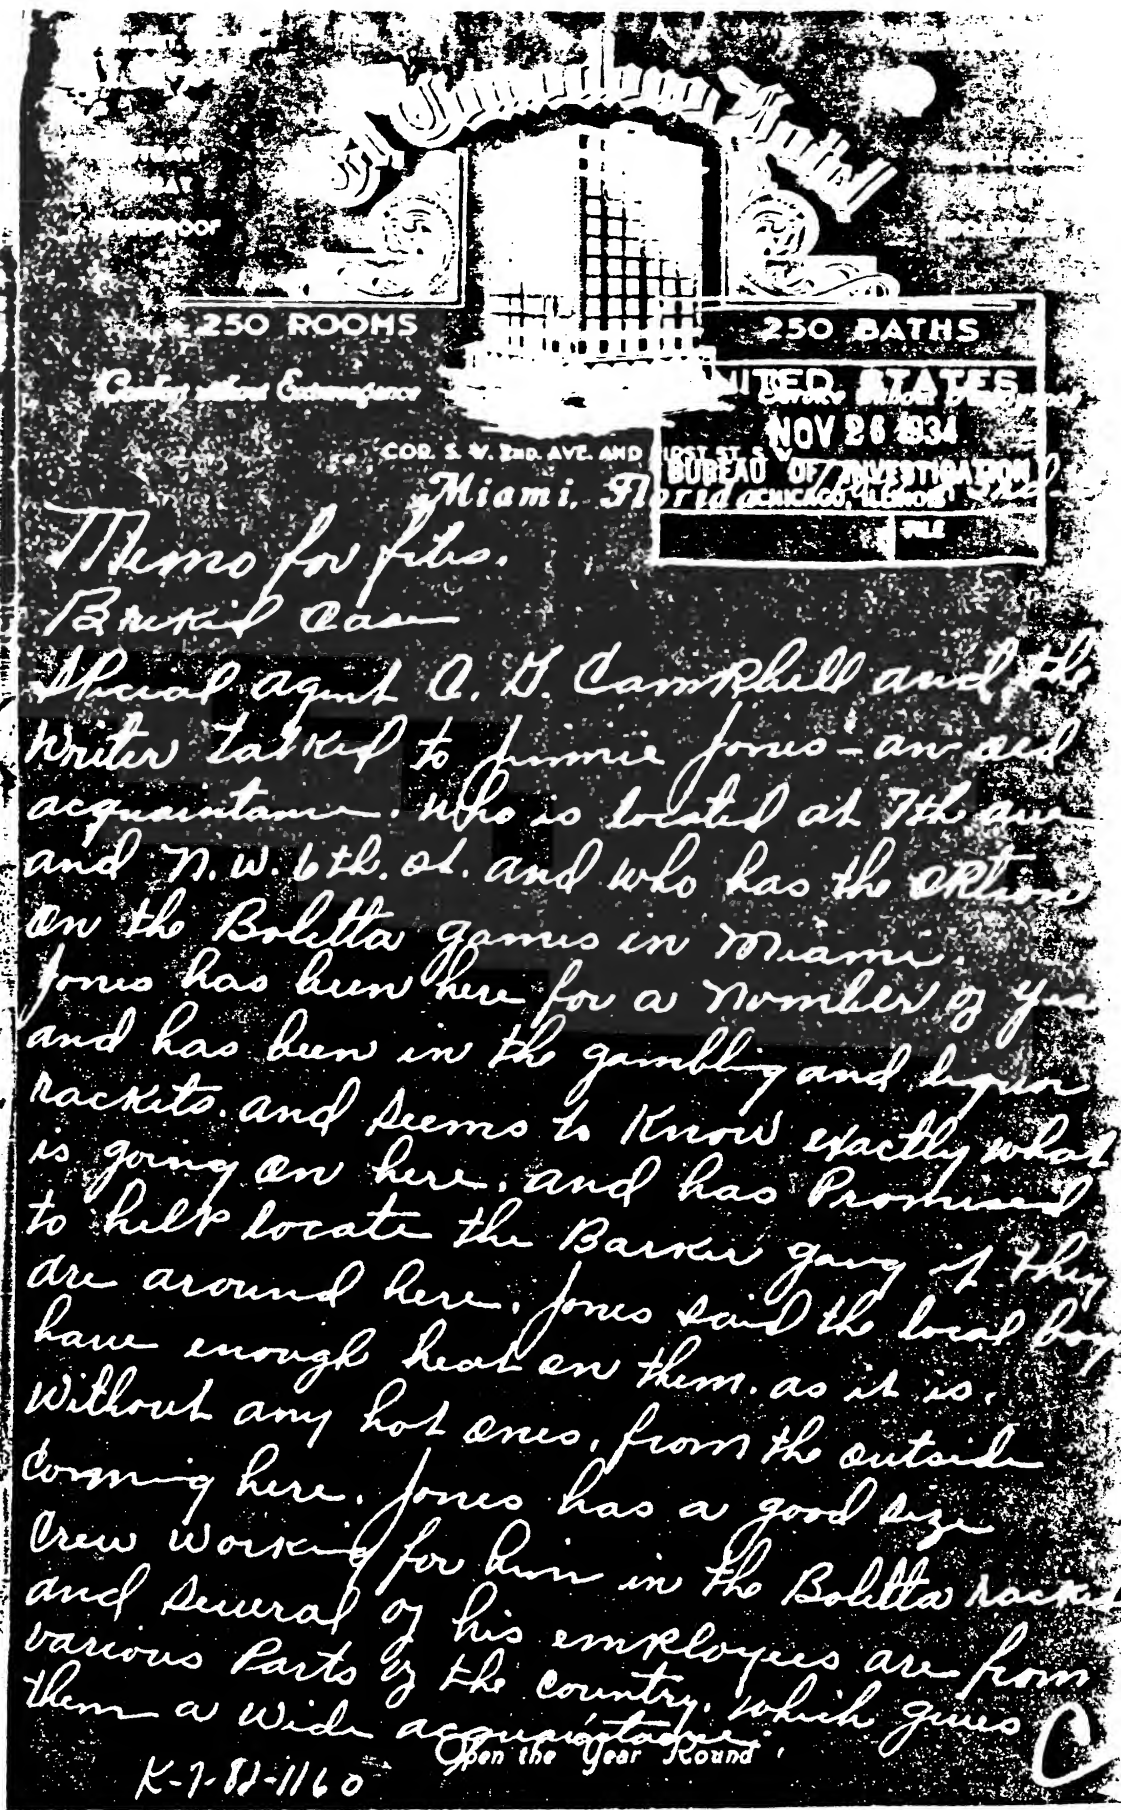 Hotel
FIREPROOF
250 ROOMS
250 BATHS
Comfort without Extravagance
COR. S. W. 2ND. AVE. AND FIRST ST. S. W.
Miami, Florida
UNITED STATES
NOV 26 1934
BUREAU OF INVESTIGATION
CHICAGO, ILLINOIS
FILE
Memo for files.
Brekid Case
Special agent C. G. Campbell and the
writer talked to Jimmie Jones - an old
acquaintance. who is located at 7th ave
and N. W. 6th. st. and who has the option
on the Boletta games in Miami.
Jones has been here for a nomber of yea
and has been in the gambling and liquor
rackets. and seems to know exactly what
is going on here. and has Promised
to help locate the Barker gang if they
are around here. Jones said the local boys
have enough heat on them. as it is.
without any hot ones, from the outside
coming here. Jones has a good size
crew working for him in the Boletta racket
and several of his employees are from
various Parts of the country. which gives
them a wide acquaintance.
Open the Year Round
K-7-82-1160
C